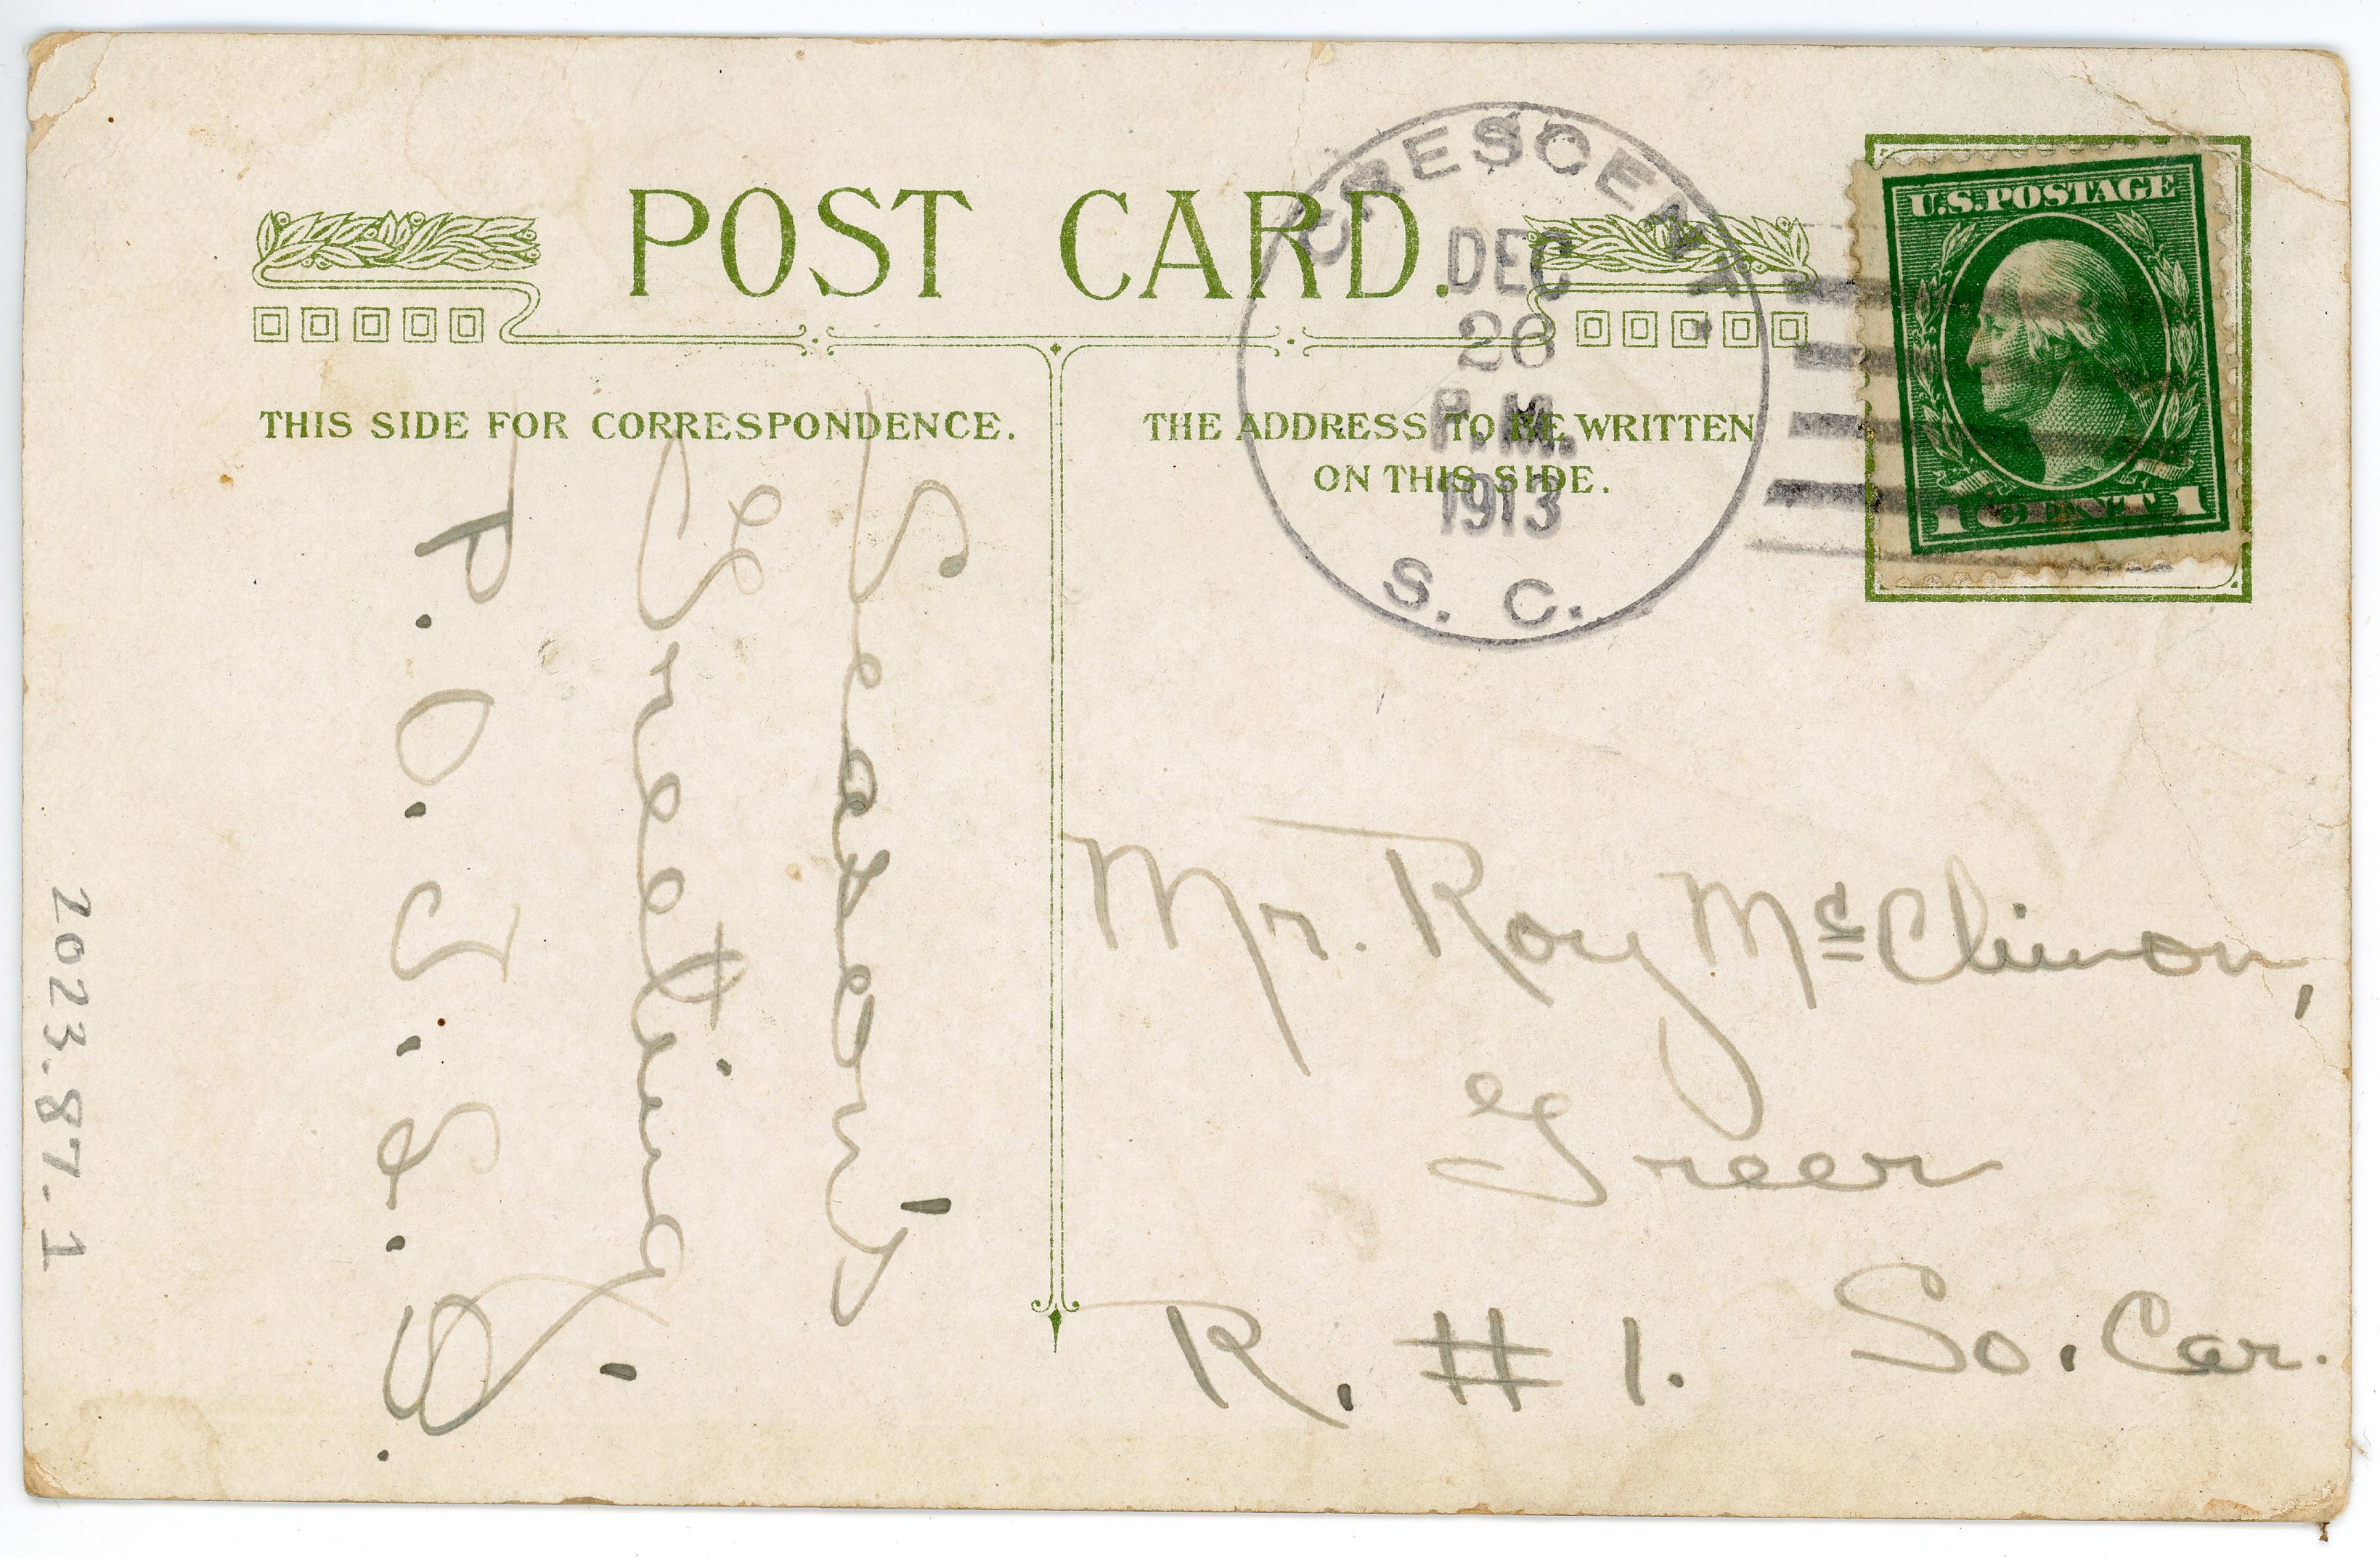 POST CARD.
THIS SIDE FOR CORRESPONDENCE.
THE ADDRESS TO BE WRITTEN
ON THIS SIDE.
CRESCENT
DEC
26
P.M.
1913
S. C.
U.S. POSTAGE
1 CENT 1
Season's
Greeting
P. O. J. S. S.
Mr. Roy McClimon,
Greer
So. Car.
R. #1.
2023.87.1